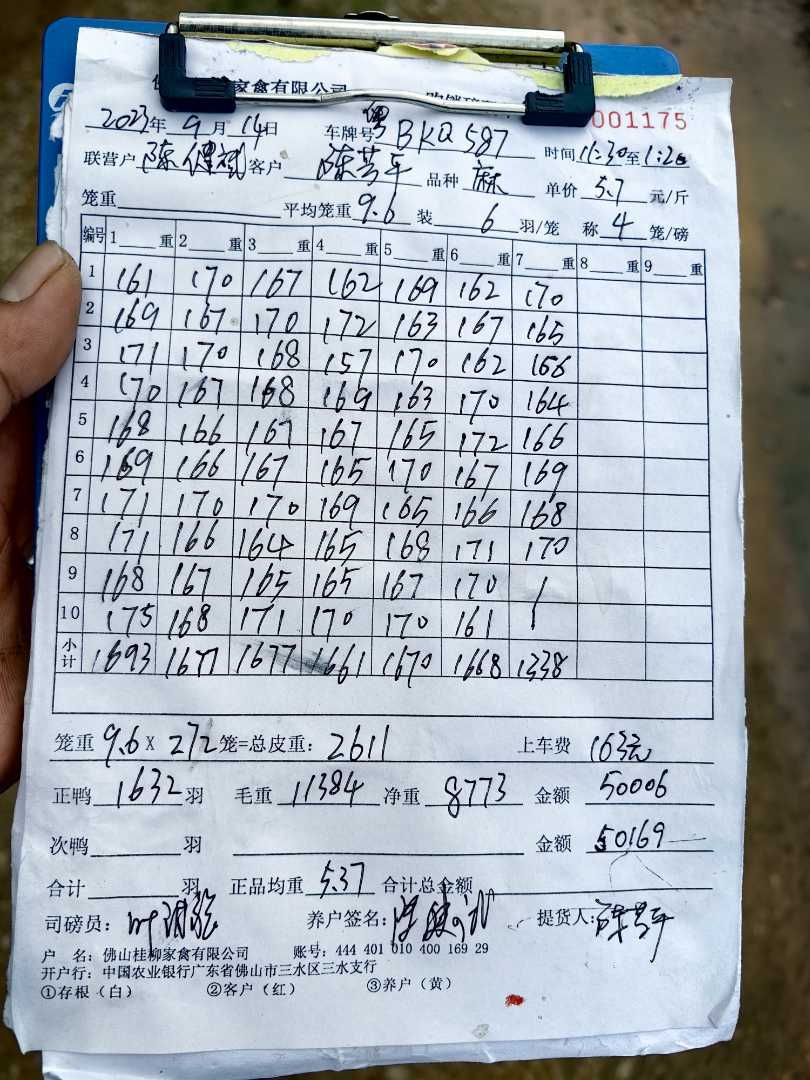 家禽有限公司
001175
2023年 9月 14日 车牌号 粤BKQ587 时间 11:30至1:20
联营户 陈健斌 客户 陈芳平 品种 麻 单价 5.7 元/斤
笼重 平均笼重 9.6 装 6 羽/笼 称 4 笼/磅
编号 1 重 2 重 3 重 4 重 5 重 6 重 7 重 8 重 9 重
1 161 170 167 162 169 162 170
2 169 167 170 172 163 167 165
3 171 170 168 157 170 162 166
4 170 167 168 169 163 170 164
5 168 166 167 167 165 172 166
6 169 166 167 165 170 167 169
7 171 170 170 169 165 166 168
8 171 166 164 165 168 171 170
9 168 167 165 165 167 170
10 175 168 171 170 170 161
小计 1693 1677 1677 1661 1670 1668 1338
笼重 9.6 X 272 笼=总皮重: 2611 上车费 163元
正鸭 1632 羽 毛重 11384 净重 8773 金额 50006
次鸭 羽 金额 50169
合计 羽 正品均重 5.37 合计总金额
司磅员: 叶 养户签名: 提货人: 陈芳平
户 名: 佛山桂柳家禽有限公司 账号: 444 401 010 400 169 29
开户行: 中国农业银行广东省佛山市三水区三水支行
①存根(白) ②客户(红) ③养户(黄)